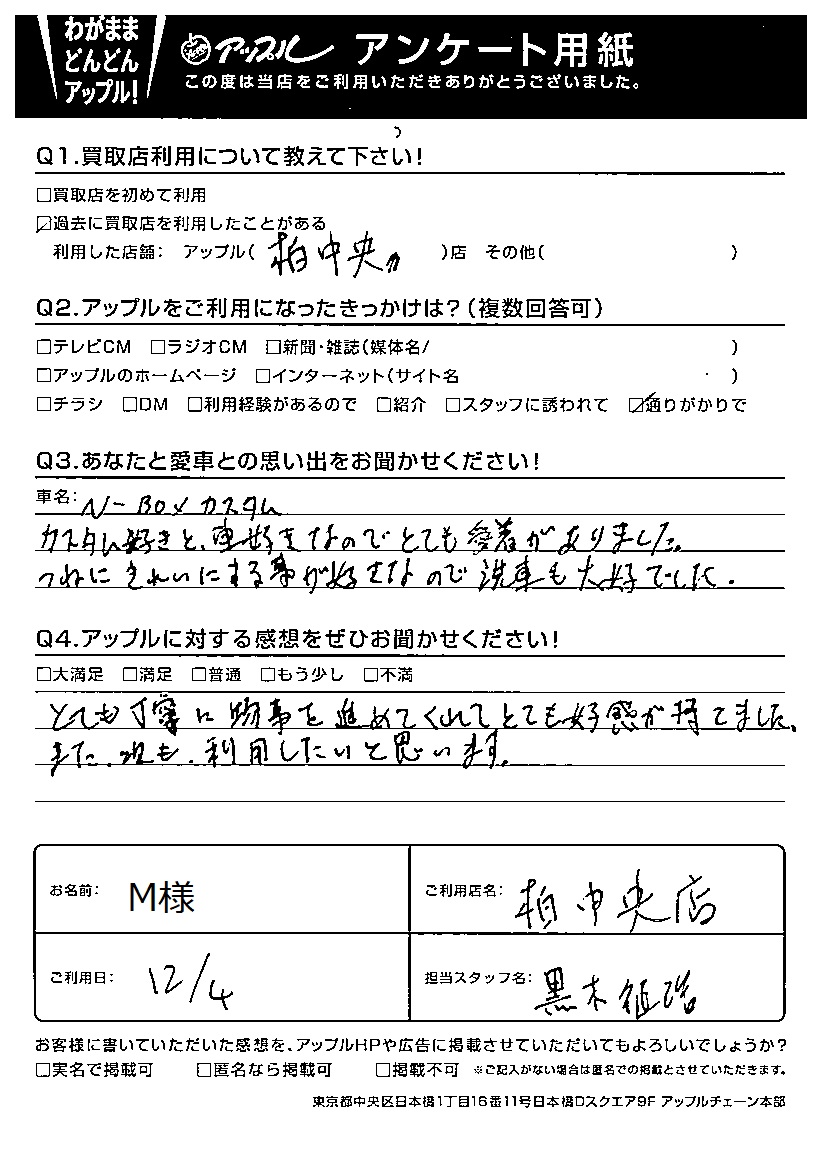 わがまま
どんどん
アップル!
アップル アンケート用紙
この度は当店をご利用いただきありがとうございました。
Q1.買取店利用について教えて下さい!
□買取店を初めて利用
☑過去に買取店を利用したことがある
利用した店舗: アップル( 柏中央 )店 その他( )
Q2.アップルをご利用になったきっかけは?(複数回答可)
□テレビCM □ラジオCM □新聞・雑誌(媒体名/ )
□アップルのホームページ □インターネット(サイト名 )
□チラシ □DM □利用経験があるので □紹介 □スタッフに誘われて ☑通りがかりで
Q3.あなたと愛車との思い出をお聞かせください!
車名: N-BOXカスタム
カスタム好きと、車好きなのでとても愛着がありました。
つねにきれいにする事が好きなので洗車も大好でした。
Q4.アップルに対する感想をぜひお聞かせください!
□大満足 □満足 □普通 □もう少し □不満
とても丁寧に物事を進めてくれてとても好感が持てました、
また、次も、利用したいと思います。
お名前: M様
ご利用店名: 柏中央店
ご利用日: 12/4
担当スタッフ名: 黒木
お客様に書いていただいた感想を、アップルHPや広告に掲載させていただいてもよろしいでしょうか?
□実名で掲載可 □匿名なら掲載可 □掲載不可 ※ご記入がない場合は匿名での掲載とさせていただきます。
東京都中央区日本橋1丁目16番11号日本橋Dスクエア9F アップルチェーン本部